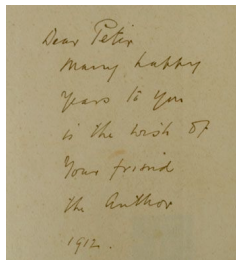 Dear Peter
Many happy
years to you
is the wish of
Your friend
the Author
1912.